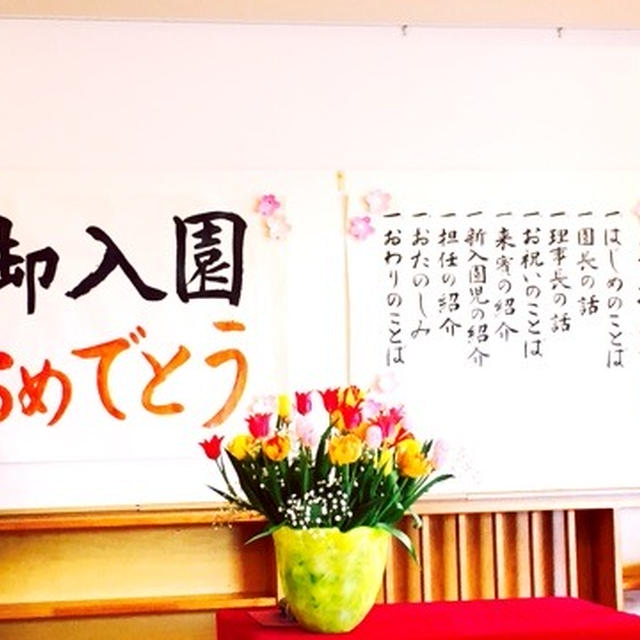 御入園
おめでとう
一はじめのことば
一園長の話
一理事長の話
一お祝いのことば
一来賓の紹介
一新入園児の紹介
一担任の紹介
一おたのしみ
一おわりのことば